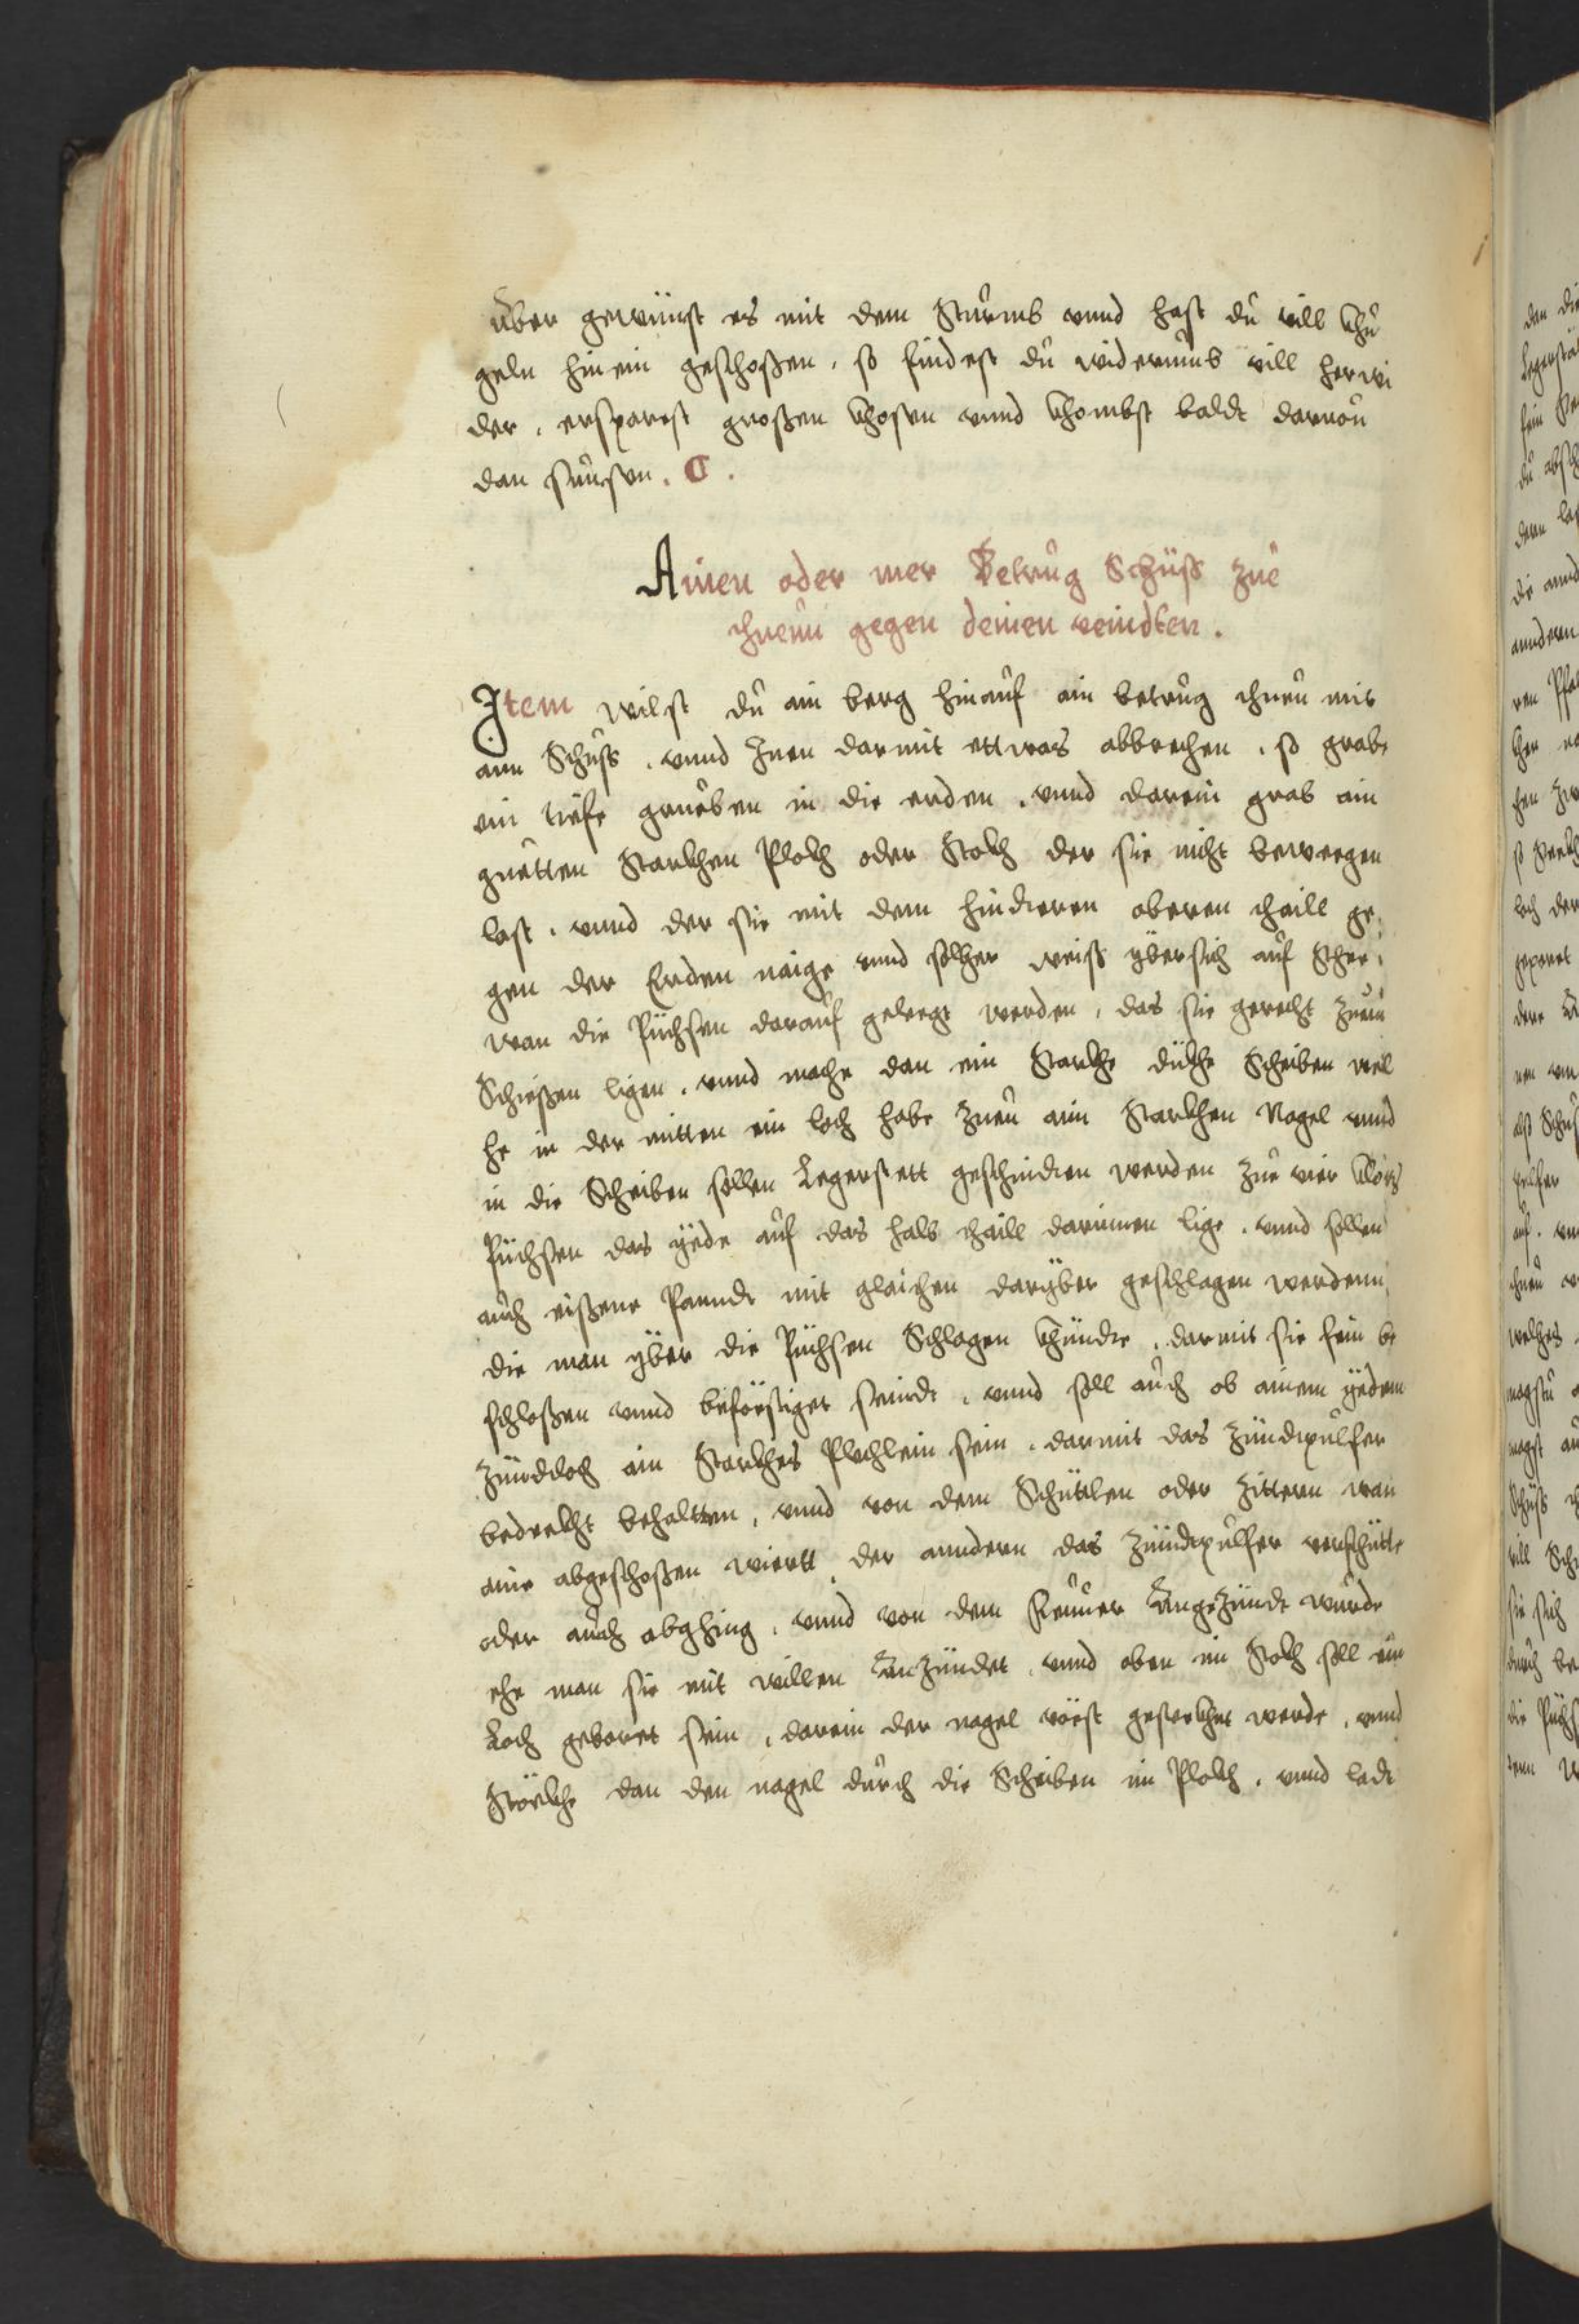 über gewünst es mit dem Sturmb vnnd hast du vill khu
geln hinein geschoßen, so findest du widerumb vill herwi
der, ersparest großen khosten vnnd khombst baldt darvon
dan sunsen. C.
Ainen oder mer Betrug Schüß zue
thuenn gegen deinen veindten.
Item wilst du ain berg hinauf ain betrug thuen mit
ann Schuß, vnnd Inen darmit ettwas abbrechen, so grabe
ein tiefe grueben in die erden, vnnd darein grab ain
guetten Starkhen Plokh oder Stokh der sie nicht bewegen
last, vnnd der sie mit dem hindteren oberen thaill ge,
gen der Erden naige vnnd solher weiß ybersich auf Scher,
wan die Püchsen darauf gelegt werden, das sie gerecht zum
Schießen ligen, vnnd mache dan ein Starkhe dükhe Scheiben wel
he in der mitten ein loch habe zuen ain Starkhen Nagel vnnd
in die Scheiben sollen Legerstett geschnidten werden zue vier Kloz
Püchsen das yede auf das halb thaill darinnen lige, vnnd sollen
auch eißene Panndt mit glaichen daryber geschlagen werdenn,
die man yber die Püchsen Schlagen khündte, darmit sie fein be
schloßen vnnd beföstiget seindt, vnnd soll auch ob ainem yedem
zündloch ain Starkhes Plechlein sein, darmit das Zündtpulfer
bedrekht behaltten, vnnd von dem Schüttlen oder zitteren wan
aine abgeschoßen wiertt, der anndern das Zündtpulfer verschütte
oder auch abghing, vnnd von dem Feuuer Anngezündt wurde
ehe man sie mit willen Anzündet, vnnd oben im Stokh soll ein
Loch geboret sein, darein der nagel vöst gesterkhet werde, vnnd
Störkhe dan den nagel durch die Scheiben im Plokh, vnnd ladt